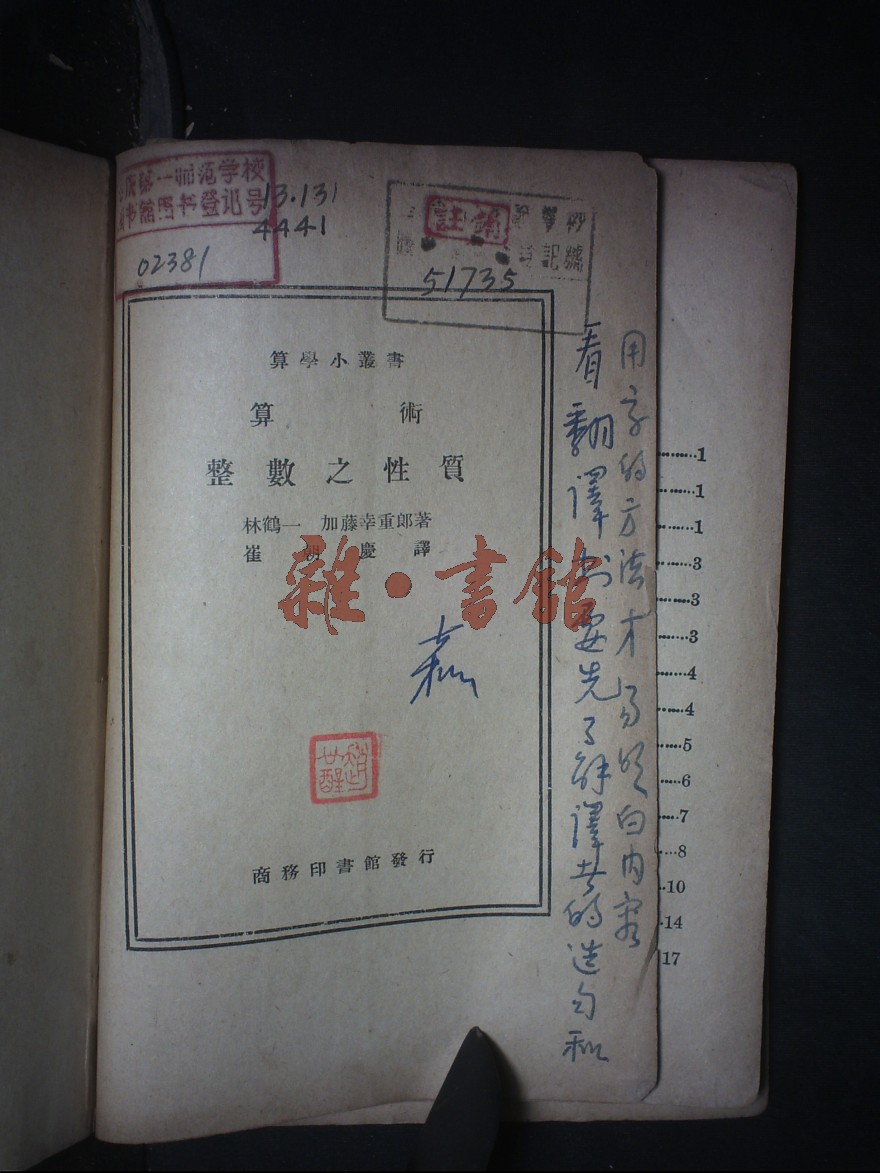 第一师范学校
书馆图书登记号
02381
13.131
4441
註銷
記號
51735
算學小叢書
算術
整數之性質
林鶴一 加藤幸重郎著
崔朝慶譯
雜·書館
商務印書館發行
看翻譯書要先了解譯者的造句和
用字的方法才易明白内容
1
1
1
3
3
3
4
4
5
6
7
8
10
14
17